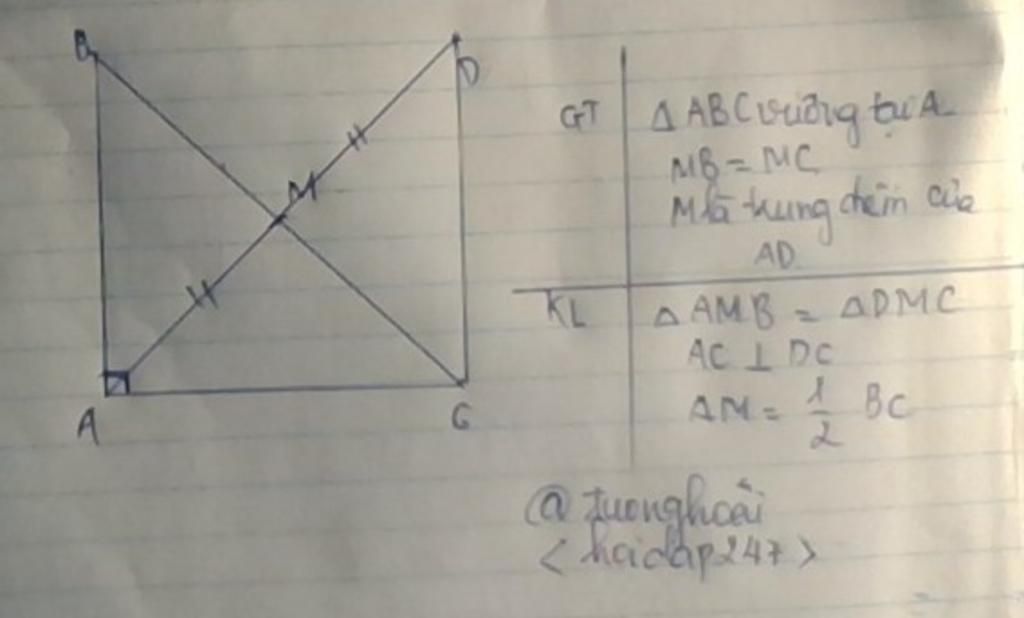 B
D
M
A
C
GT
Δ ABC vuông tại A
MB = MC
M là trung điểm của
AD
KL
Δ AMB = ΔDMC
AC ⊥ DC
AM = 1/2 BC
@ tuonghoai
< hoidap247 >